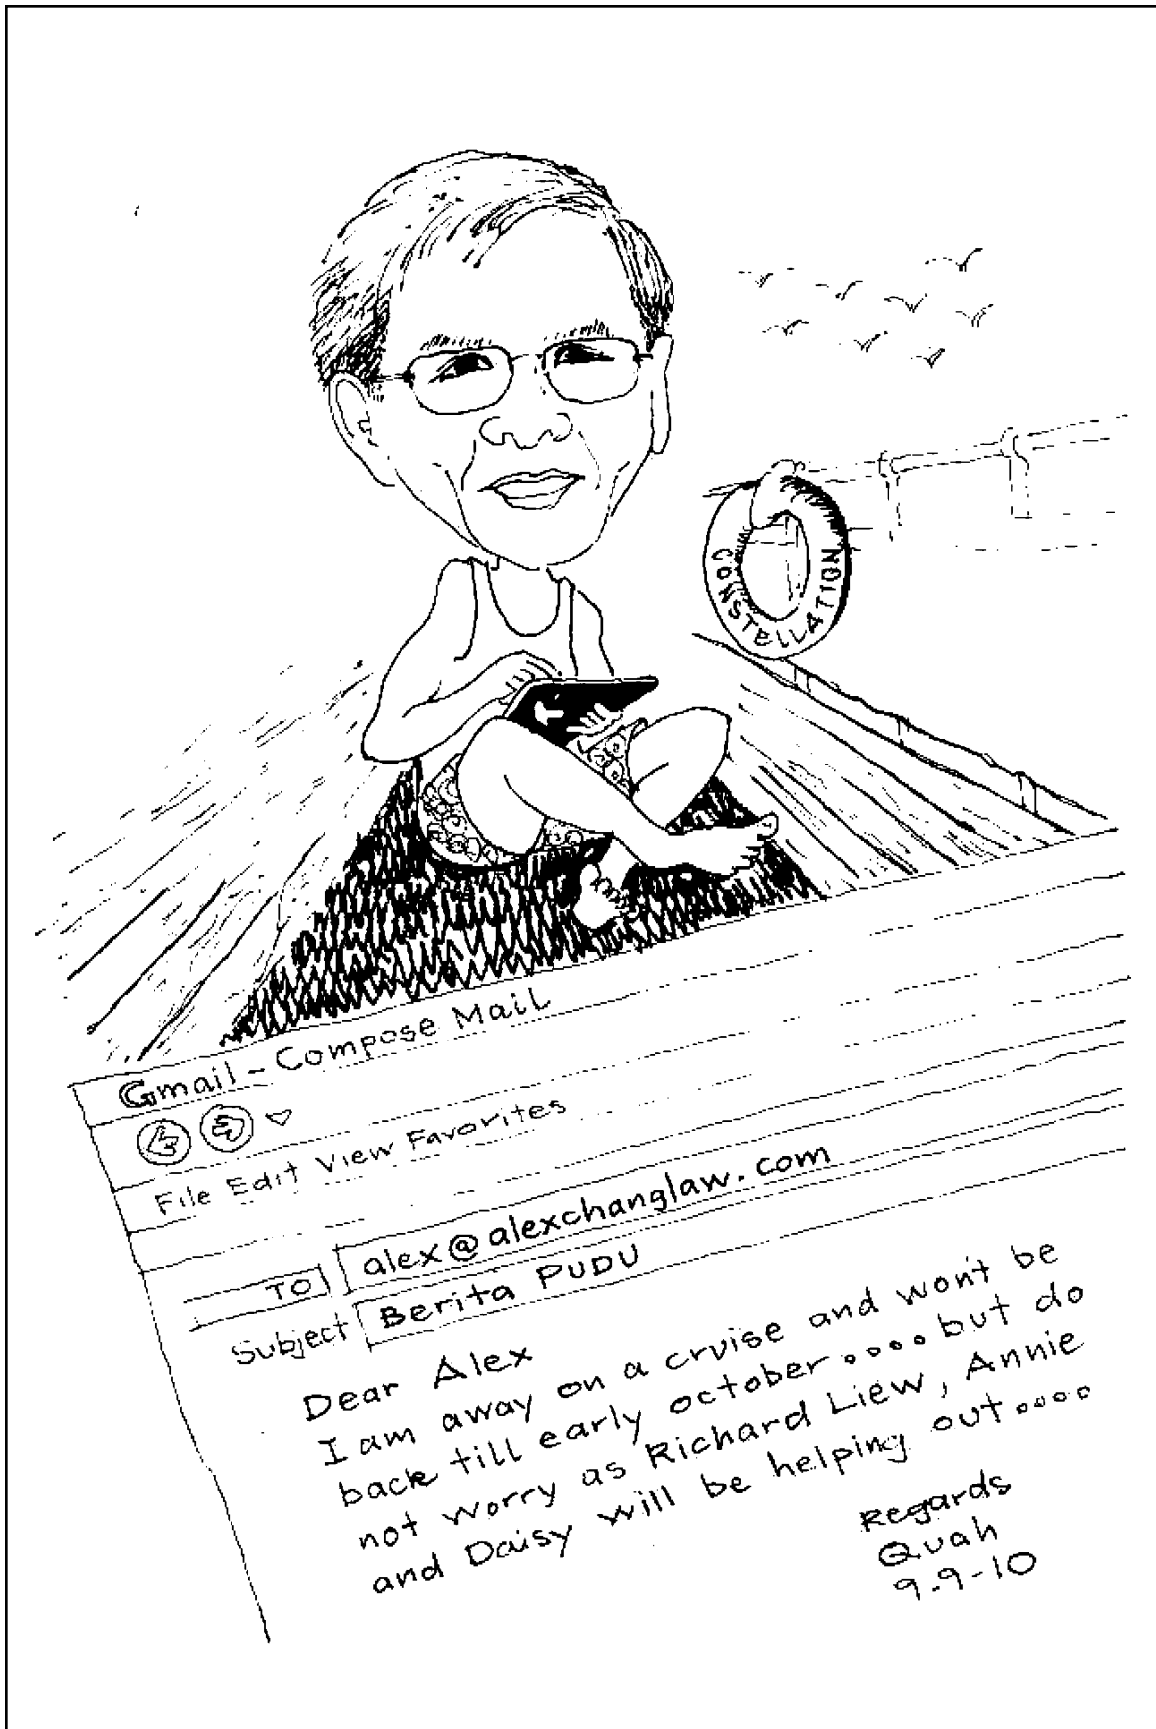 CONSTELLATION
Gmail - Compose Mail
File Edit View Favorites
TO alex@alexchanglaw.com
Subject Berita PUDU
Dear Alex
I am away on a cruise and won't be
back till early october.... but do
not worry as Richard Liew, Annie
and Daisy will be helping out....
Regards
Quah
9-9-10